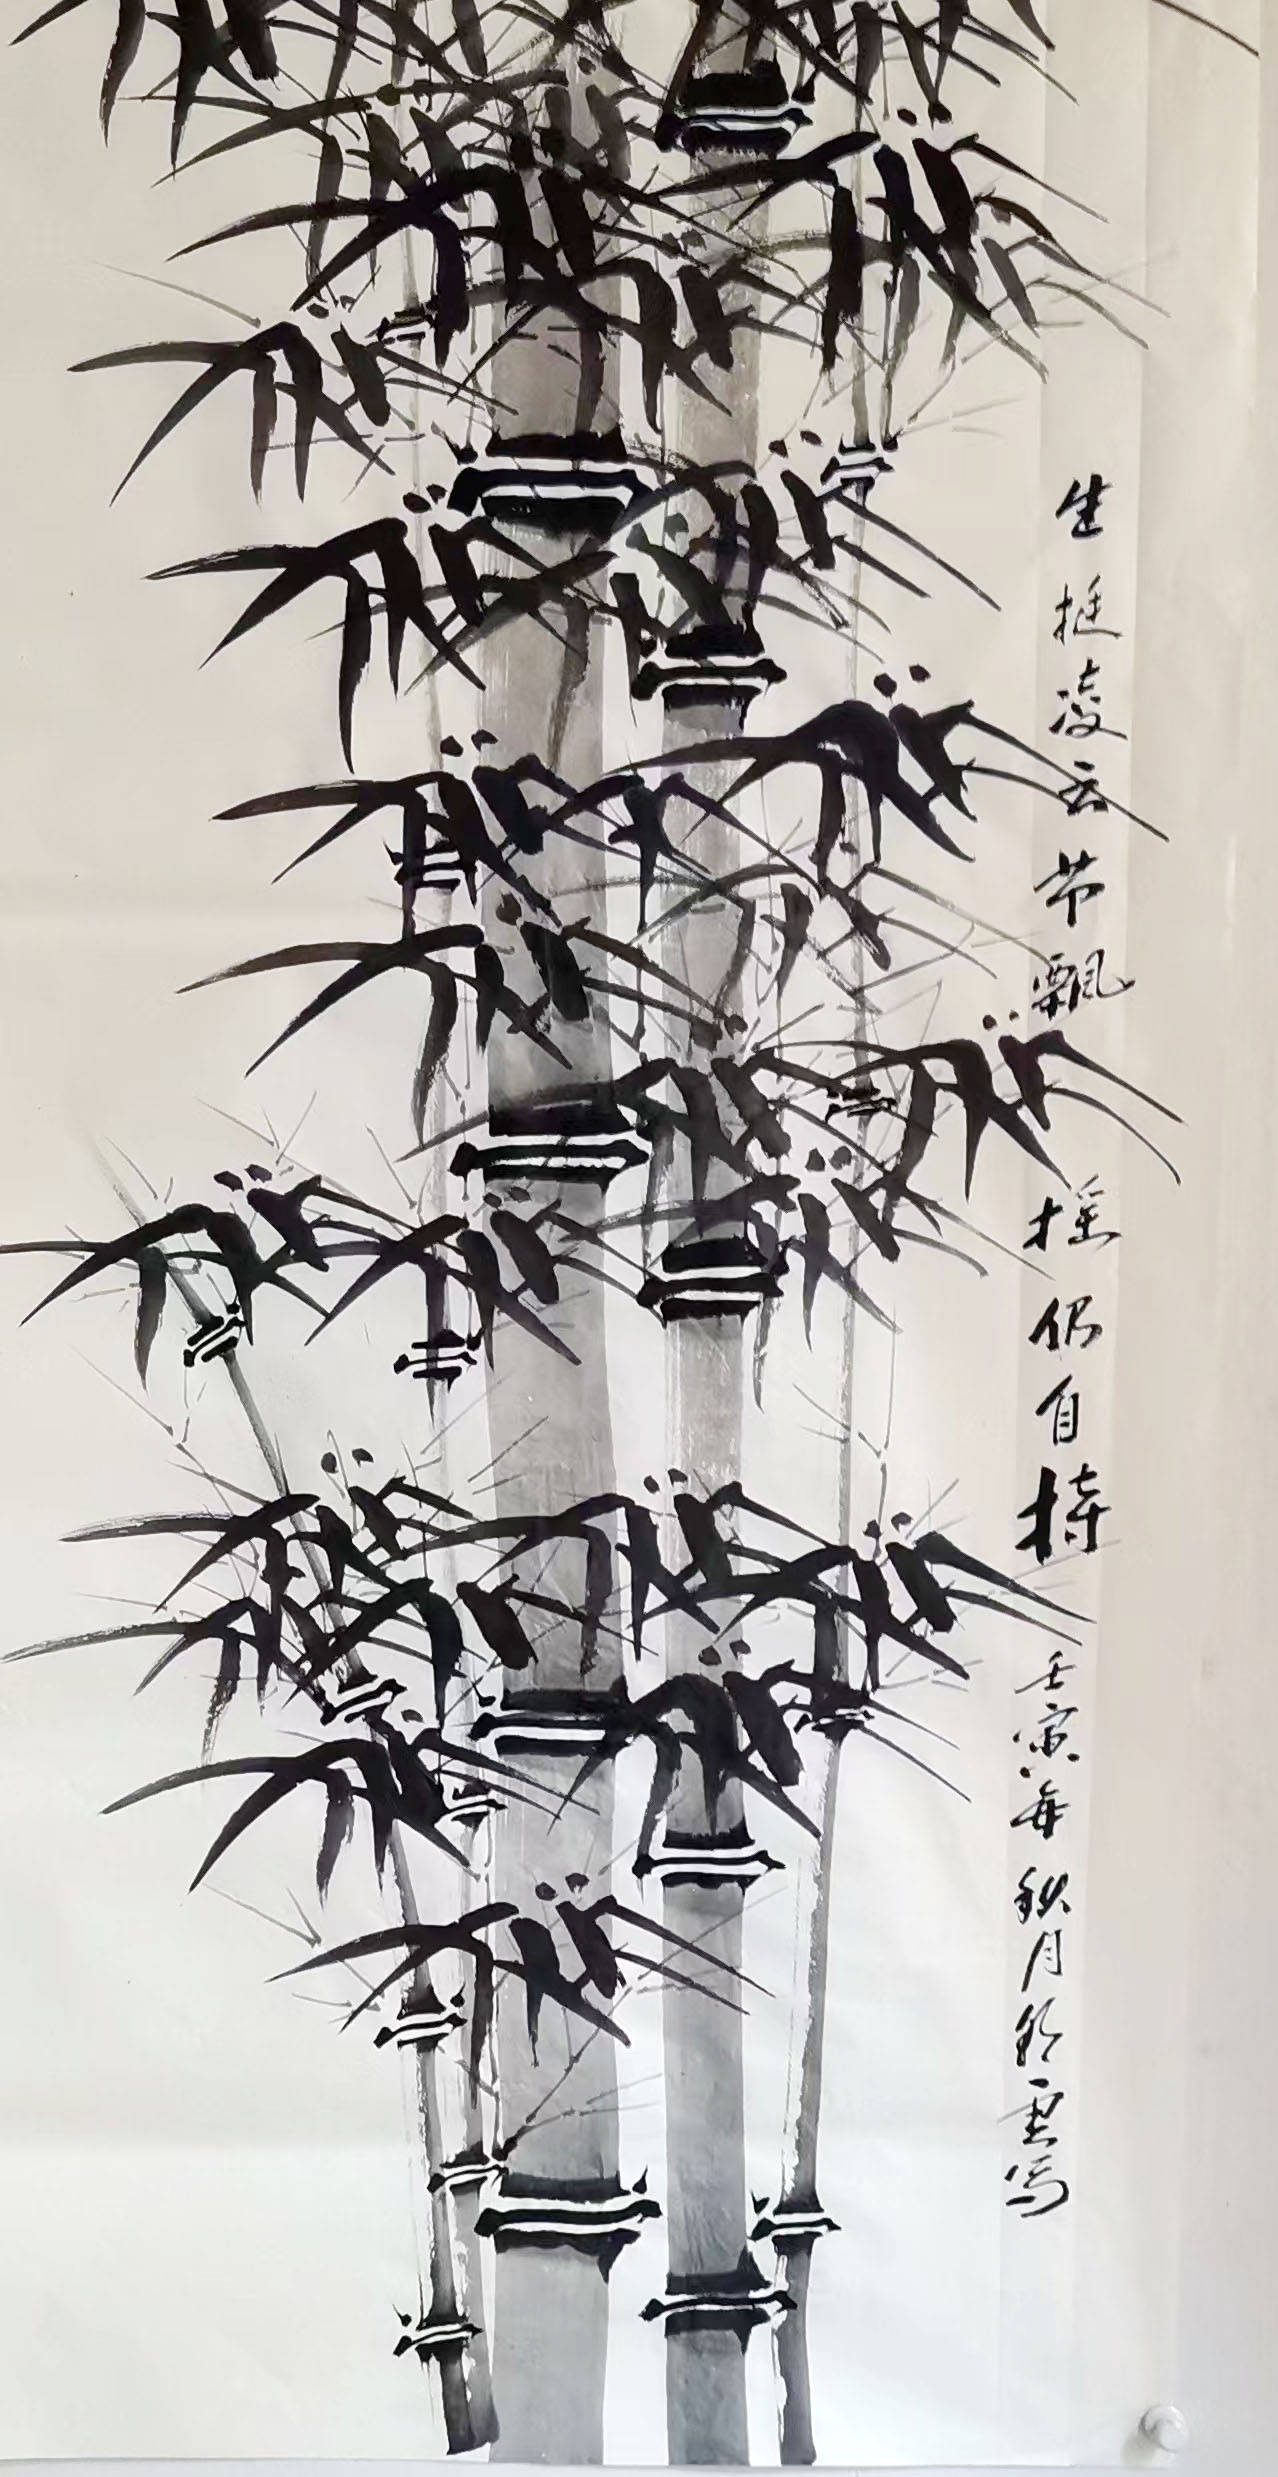 生挺凌云节飘摇仍自持壬寅年秋月写